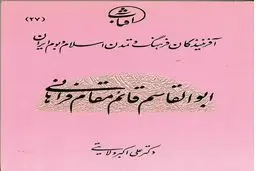 آفتاب
(۲۷)
آفرینندگان فرهنگ و تمدن اسلام و بوم ایران
ابوالقاسم قائم مقام فراهانی
دکتر علی اکبر ولایتی